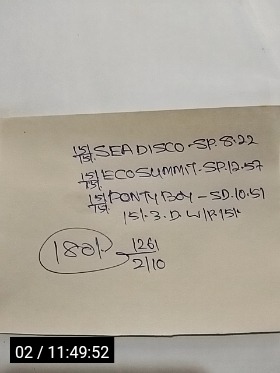 15/ 15/. SEA DISCO - SP. 8.22
15/ 15/. ECO SUMMIT - SP. 12.57
15/ 15/. PONTY BOY - SD. 10.51
15/. 3. D. W/R 15/.
180/. 1261
2/10
02 / 11:49:52